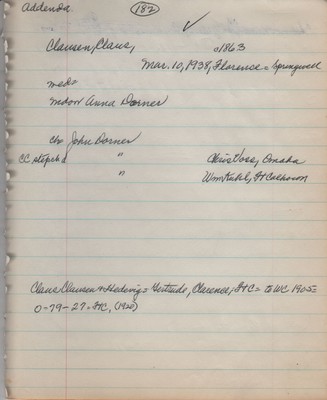 Addenda
182
✓
Clausen, Claus, o1863
Mar. 10, 1938, Florence = Springwell
med=
mdow Anna Dorner
ch= John Dorner
CC stepch " Chris Voss, Omaha
" Wm Kuhl, Ft Calhoun
Claus Clausen & Hedwig = Gertrude, Clarence, FtC = to WC 1905=
0-79-27-FtC, (1920)